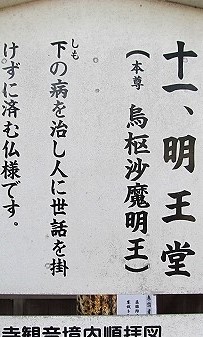 十一、明王堂
(本尊 烏枢沙魔明王)
下の病を治し人に世話を掛
しも
けずに済む仏様です。
寺観音境内順拝図